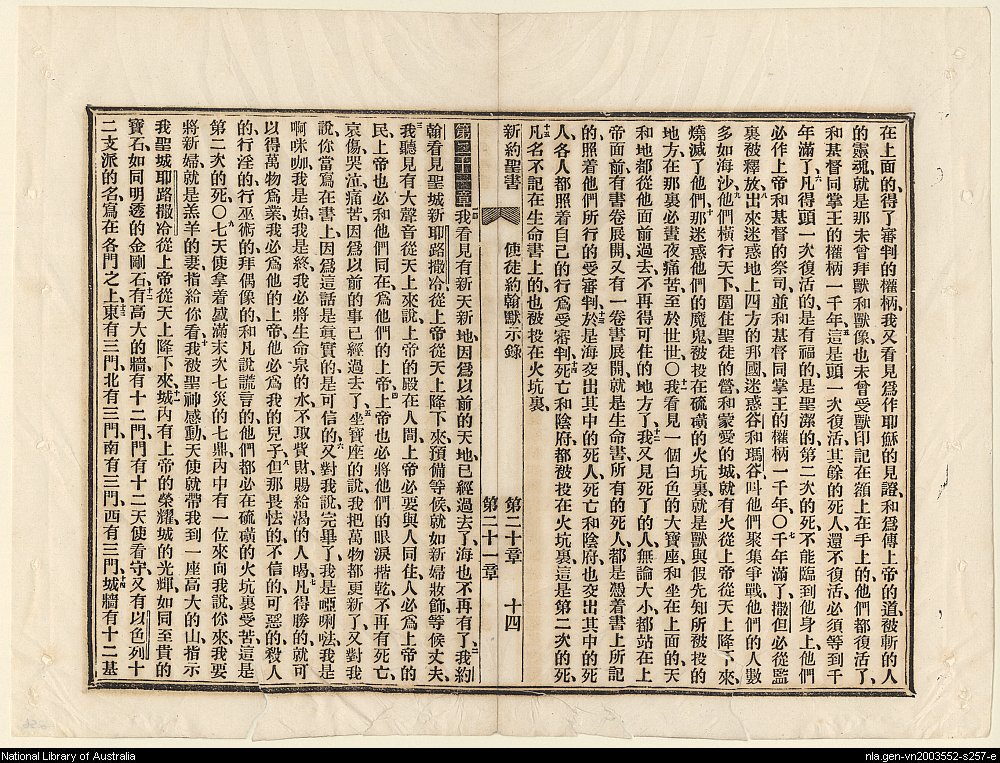 在上面的、得了審判的權柄、我又看見爲作耶穌的見證、和爲傳上帝的道、被斬的人
的靈魂、就是那未曾拜獸和獸像、也未曾受獸印記在額上在手上的、他們都復活了、
和基督同掌王的權柄一千年、五這是頭一次復活、其餘的死人、還不復活、必須等到千
年滿了、六凡得頭一次復活的、是有福的、是聖潔的、第二次的死、不能臨到他身上、他們
必作上帝和基督的祭司、並和基督同掌王的權柄一千年、〇七千年滿了、撒但必從監
裏被釋放、八出來迷惑地上四方的邦國、迷惑谷和瑪谷、叫他們聚集爭戰、他們的人數
多如海沙、九他們橫行天下、圍住聖徒的營、和蒙愛的城、就有火從上帝從天上降下來、
燒滅了他們、十那迷惑他們的魔鬼、被投在硫磺的火坑裏、就是獸與假先知所被投的
地方、在那裏必晝夜痛苦、至於世世、〇十一我看見一個白色的大寶座、和坐在上面的、天
和地都從他面前過去、不再得可住的地方了、十二我又見死了的人、無論大小、都站在上
帝面前、有書卷展開、又有一卷書展開、就是生命書、所有的死人、都是憑着書上所記
的、照着他們所行的受審判、十三於是海交出其中的死人、死亡和陰府、也交出其中的死
人、各人都照着自己的行爲受審判、十四死亡和陰府、都被投在火坑裏、這是第二次的死、
十五凡名不記在生命書上的、也被投在火坑裏、
新約聖書 使徒約翰默示錄 第二十章 十四
第二十一章
第二十一章 一我看見有新天新地、因爲以前的天地、已經過去了、海也不再有了、二我約
翰看見聖城新耶路撒冷、從上帝從天上降下來、預備等候、就如新婦妝飾等候丈夫、
三我聽見有大聲音從天上來、說、上帝的殿在人間、上帝必要與人同住、人必爲上帝的
民、上帝也必和他們同在、爲他們的上帝、四上帝也必將他們的眼淚揩乾、不再有死亡、
哀傷、哭泣、痛苦、因爲以前的事已經過去了、五坐寶座的說、我把萬物都更新了、又對我
說、你當寫在書上、因爲這話是眞實的、是可信的、六又對我說、完畢了、我是啞唎𠿪、我是
啊咪咖、我是始、我是終、我必將生命泉的水、不取貲財、賜給渴的人喝、七凡得勝的、就可
以得萬物爲業、我必爲他的上帝、他必爲我的兒子、八但那畏怯的、不信的、可惡的、殺人
的、行淫的、行巫術的、拜偶像的、和凡說謊言的、他們都必在硫磺的火坑裏受苦、這是
第二次的死、〇九七天使拿着盛滿末次七災的七鼎、內中有一位來向我說、你來、我要
將新婦就是羔羊的妻、指給你看、十我被聖神感動、天使就帶我到一座高大的山、指示
我聖城耶路撒冷、從上帝從天上降下來、十一城內有上帝的榮耀、城的光輝、如同至貴的
寶石、如同明透的金剛石、十二有高大的牆、有十二門、門有十二天使看守、又有以色列十
二支派的名、寫在各門之上、十三東有三門、北有三門、南有三門、西有三門、十四城牆有十二基
National Library of Australia
nla.gen-vn2003552-s257-e